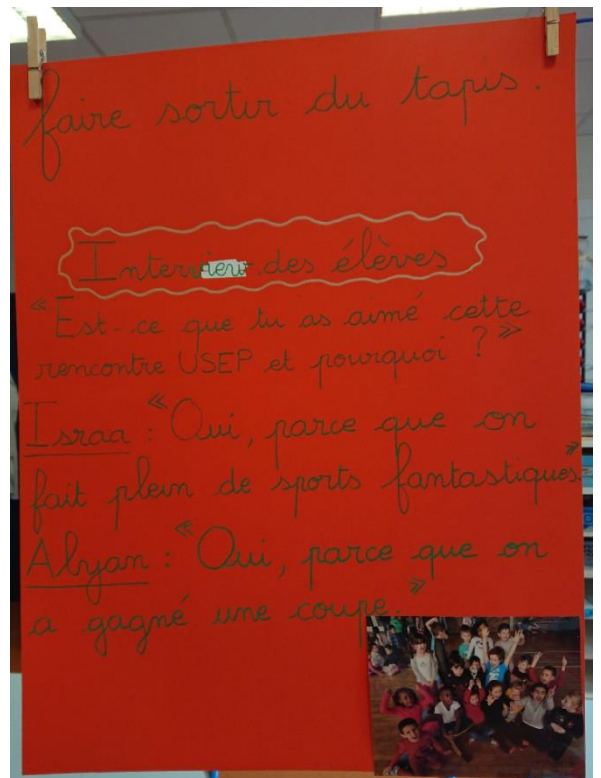 faire sortir du tapis.
Interview des élèves
"Est-ce que tu as aimé cette
rencontre USEP et pourquoi ?"
Israa : "Oui, parce que on
fait plein de sports fantastiques"
Alyan : "Oui, parce que on
a gagné une coupe."